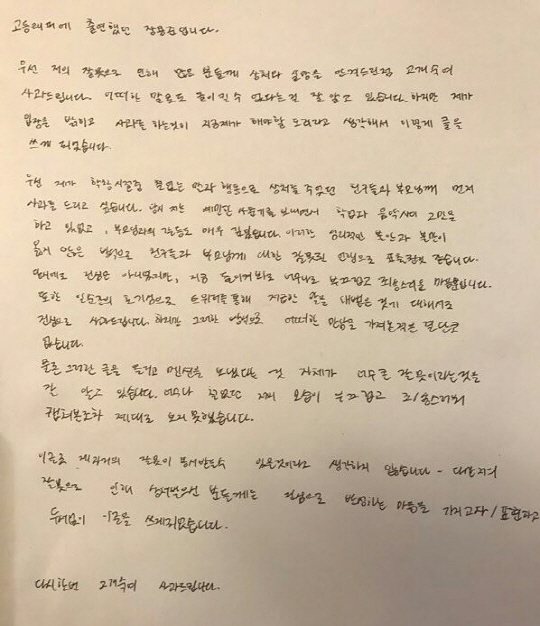 고등래퍼에 출연했던 장용준입니다.
우선 저의 잘못으로 인해 많은 분들께 상처와 실망을 안겨드린점 고개숙여
사과드립니다. 어떠한 말로도 용서될 수 없다는걸 잘 알고 있습니다. 하지만 제가
입장을 밝히고 사과를 하는것이 지금제가 해야할 도리라고 생각해서 이렇게 글을
쓰게 되었습니다.
우선 제가 학창시절중 철없는 말과 행동으로 상처를 주었던 친구들과 부모님께 먼저
사과를 드리고 싶습니다. 당시 저는 예민한 사춘기를 보내면서 학업과 음악사이 고민을
하고 있었고, 부모님과의 갈등도 매우 깊었습니다. 이러한 심리적인 불안과 불만이
옳지 않은 방식으로 친구들과 부모님께 대한 잘못된 언행으로 표출된것 같습니다.
진심은 아니었지만, 지금 돌이켜봐도 너무나도 부끄럽고 죄송스러울 따름입니다.
또한 일순간의 호기심으로 트위터를 통해 저급한 말을 내뱉은 것에 대해서도
진심으로 사과드립니다. 하지만 그러한 방식으로 어떠한 만남을 가져본적은 결단코
없습니다.
물론 그러한 글을 올리고 멘션을 보냈다는 것 자체가 너무 큰 잘못이라는것을
잘 알고 있습니다. 너무나 철없던 제 모습이 부끄럽고 죄송스러워
캡쳐본조차 제대로 보지 못했습니다.
이글로 제과거의 잘못이 용서받을수 있을것이라고 생각하지 않습니다.
잘못으로 인해 상처받으신 분들께는 진심으로 반성하는 마음을 가지고자/표현하고
두서없이 이글을 쓰게되었습니다.
다시한번 고개숙여 사과드립니다.